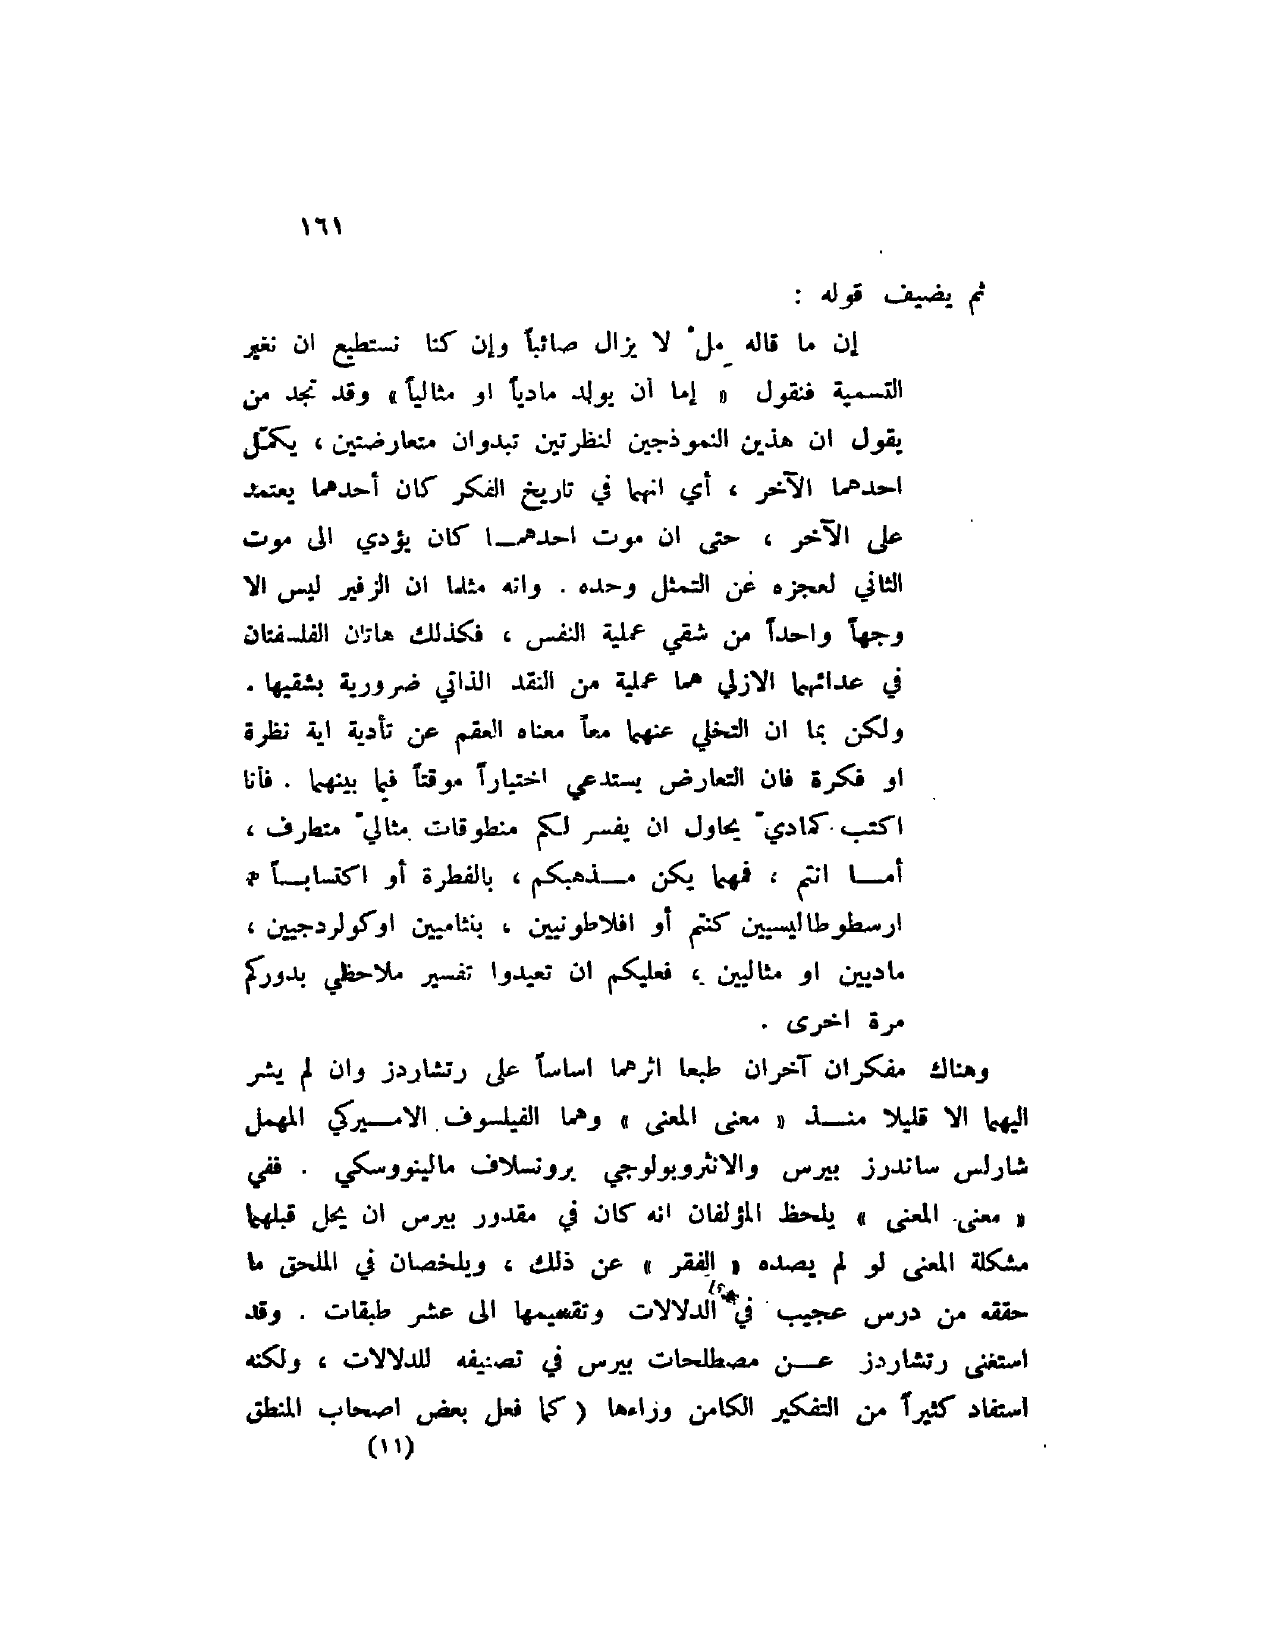 ١٦١
ثم يضيف قوله :
إن ما قاله مِلْ لا يزال صائباً وإن كنا نستطيع ان نغير
التسمية فنقول « إما أن يولد مادياً او مثالياً » وقد تجد من
يقول ان هذين النموذجين لنظرتين تبدوان متعارضتين ، يكمّل
احدهما الآخر ، أي انهما في تاريخ الفكر كان أحدهما يعتمد
على الآخر ، حتى ان موت احدهمـــا كان يؤدي الى موت
الثاني لعجزه عن التمثل وحده . وانه مثلما ان الزفير ليس الا
وجهاً واحداً من شقي عملية النفس ، فكذلك هاتان الفلسفتان
في عدائهما الازلي هما عملية من النقد الذاتي ضرورية بشقيها .
ولكن بما ان التخلي عنهما معاً معناه العقم عن تأدية اية نظرة
او فكرة فان التعارض يستدعي اختياراً موقتاً فيما بينهما . فأنا
اكتب كماديّ يحاول ان يفسر لكم منطوقات مثاليّ متطرف ،
أمـــا انتم ، فمهما يكن مـــذهبكم ، بالفطرة أو اكتسابـــاً ،
ارسطوطاليسيين كنتم أو افلاطونيين ، بنثاميين او كولردجيين ،
ماديين او مثاليين ، فعليكم ان تعيدوا تفسير ملاحظي بدوركم
مرة اخرى .
وهناك مفكران آخران طبعا اثرهما اساساً على رتشاردز وان لم يشر
اليهما الا قليلا منـــذ « معنى المعنى » وهما الفيلسوف الامـــيركي المهمل
شارلس ساندرز بيرس والانثروبولوجي برونسلاف مالينووسكي . ففي
« معنى المعنى » يلحظ المؤلفان انه كان في مقدور بيرس ان يحل قبلهما
مشكلة المعنى لو لم يصده « الفقر » عن ذلك ، ويلخصان في الملحق ما
حققه من درس عجيب في الدلالات وتقسيمها الى عشر طبقات . وقد
استغنى رتشاردز عـــن مصطلحات بيرس في تصنيفه للدلالات ، ولكنه
استفاد كثيراً من التفكير الكامن وراءها ( كما فعل بعض اصحاب المنطق
(١١)